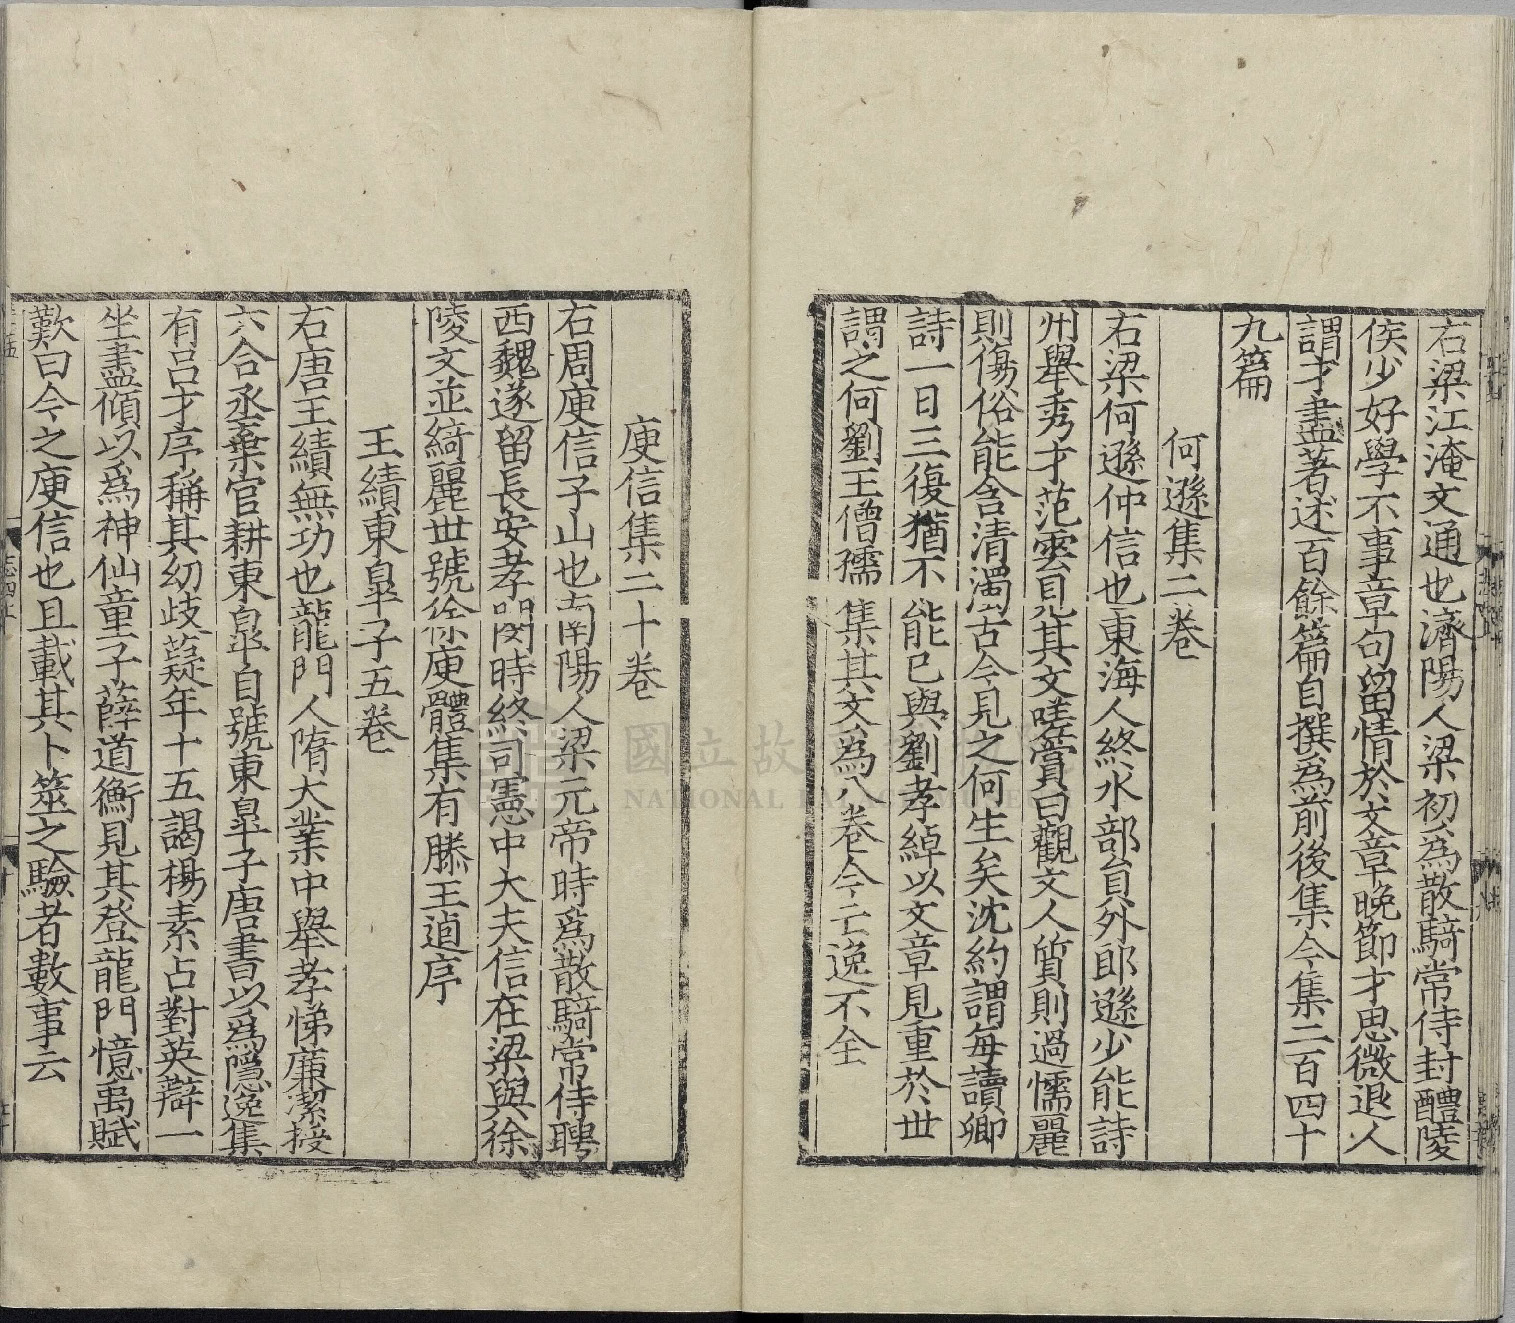 右梁江淹文通也濟陽人梁初為散騎常侍封醴陵
侯少好學不事章句留情於文章晚節才思微退人
謂才盡著述百餘篇自撰為前後集今集二百四十
九篇
何遜集二卷
右梁何遜仲信也東海人終水部員外郎遜少能詩
州舉秀才范雲見其文嗟賞曰觀文人質則過懦麗
則傷俗能含清濁古今見之何生矣沈約謂每讀卿
詩一日三復猶不能已與劉孝綽以文章見重於世
謂之何劉王僧孺集其文為八卷今亡逸不全
庾信集二十卷
右周庾信子山也南陽人梁元帝時為散騎常侍聘
西魏遂留長安孝閔時終司憲中大夫信在梁與徐
陵文並綺麗世號徐庾體集有滕王逌序
王績東臯子五卷
右唐王績無功也龍門人隋大業中舉孝悌廉潔授
六合丞棄官耕東臯自號東臯子唐書以為隱逸集
有呂才序稱其幼岐嶷年十五謁楊素占對英辯一
坐盡傾以為神仙童子薛道衡見其登龍門憶禹賦
歎曰今之庾信也且載其卜筮之驗者數事云
國立故宮博物院
NATIONAL PALACE MUSEUM